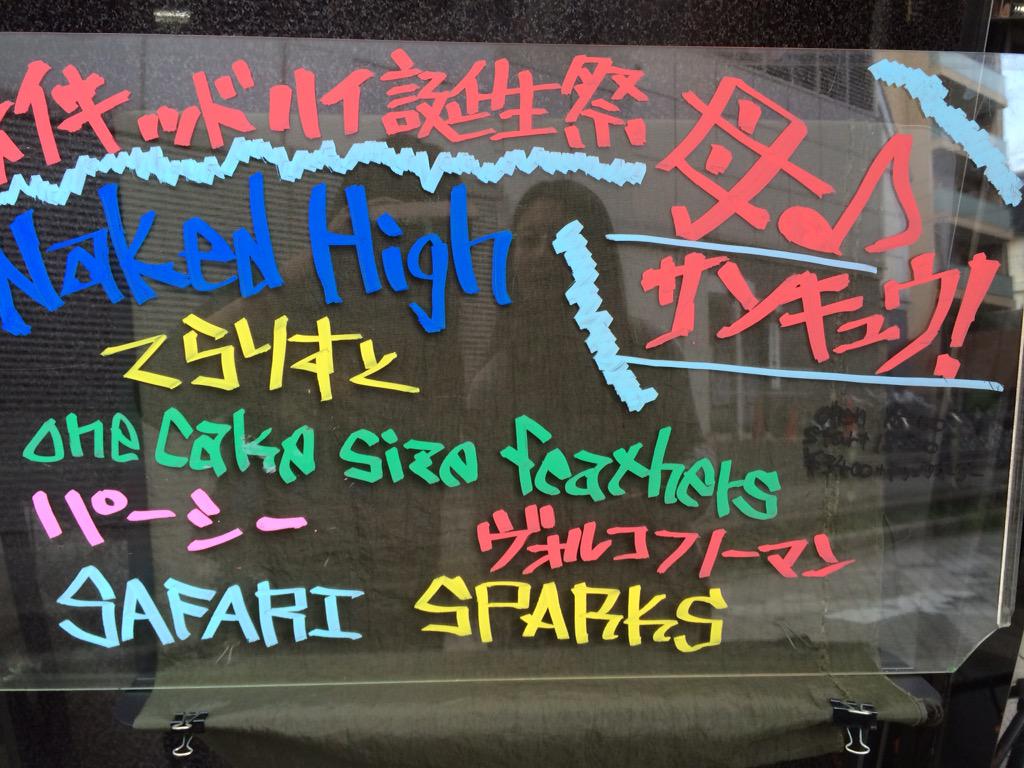 イキッドハイ誕生祭
母♪
サンキュウ!
Naked High
てらりすと
one cake size feathers
リパーシー
ヴォルコフノーマン
SAFARI SPARKS